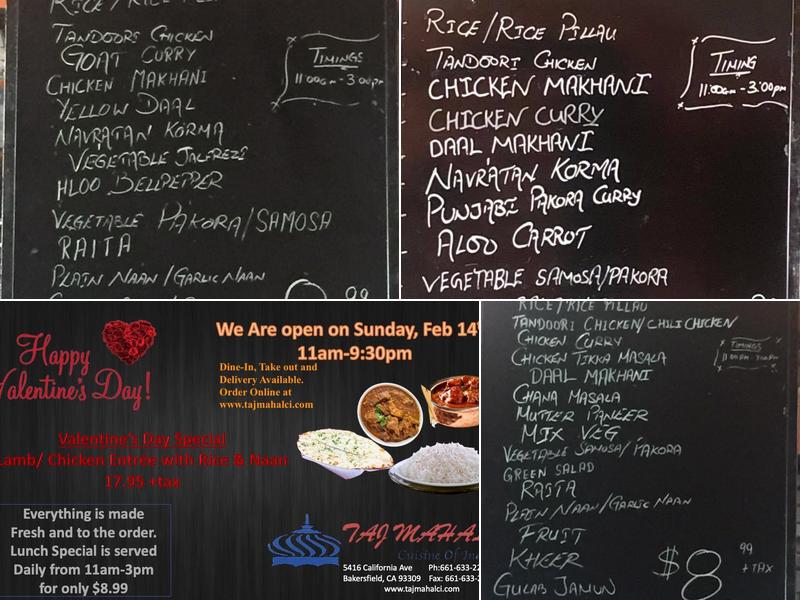 RICE/RICE PILLAU
TANDOORI CHICKEN
GOAT CURRY
CHICKEN MAKHANI
YELLOW DAAL
NAVRATAN KORMA
VEGETABLE JALFREZI
ALOO BELLPEPPER
VEGETABLE PAKORA/SAMOSA
RAITA
PLAIN NAAN/GARLIC NAAN
99
TIMINGS
11:00am-3:00pm
RICE/RICE PILLAU
TANDOORI CHICKEN
CHICKEN MAKHANI
CHICKEN CURRY
DAAL MAKHANI
NAVRATAN KORMA
PUNJABI PAKORA CURRY
ALOO CARROT
VEGETABLE SAMOSA/PAKORA
TIMING
11:00am-3:00pm
Happy
Valentine's Day!
We Are open on Sunday, Feb 14
11am-9:30pm
Dine-In, Take out and
Delivery Available.
Order Online at
www.tajmahalci.com
Valentine's Day Special
Lamb/ Chicken Entrée with Rice & Naan
17.95 +tax
Everything is made
Fresh and to the order.
Lunch Special is served
Daily from 11am-3pm
for only $8.99
TAJ MAHA
Cuisine Of In
5416 California Ave Ph:661-633-22
Bakersfield, CA 93309 Fax: 661-633-2
www.tajmahalci.com
RICE/RICE PILLAU
TANDOORI CHICKEN/CHILI CHICKEN
CHICKEN CURRY
CHICKEN TIKKA MASALA
DAAL MAKHANI
CHANA MASALA
MUTTER PANEER
MIX VEG
VEGETABLE SAMOSA/PAKORA
GREEN SALAD
RAITA
PLAIN NAAN/GARLIC NAAN
FRUIT
KHEER
GULAB JAMUN
TIMINGS
11:00am-3:00pm
$8 99
+ TAX